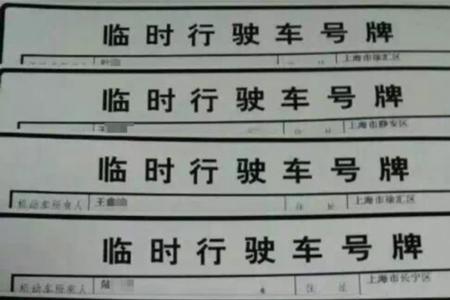 临时行驶车号牌
上海市徐汇区
临时行驶车号牌
王
住 址 上海市静安区
临时行驶车号牌
机动车所有人 王鑫 住 址 上海市徐汇区
临时行驶车号牌
机动车所有人 陆 住 址 上海市长宁区